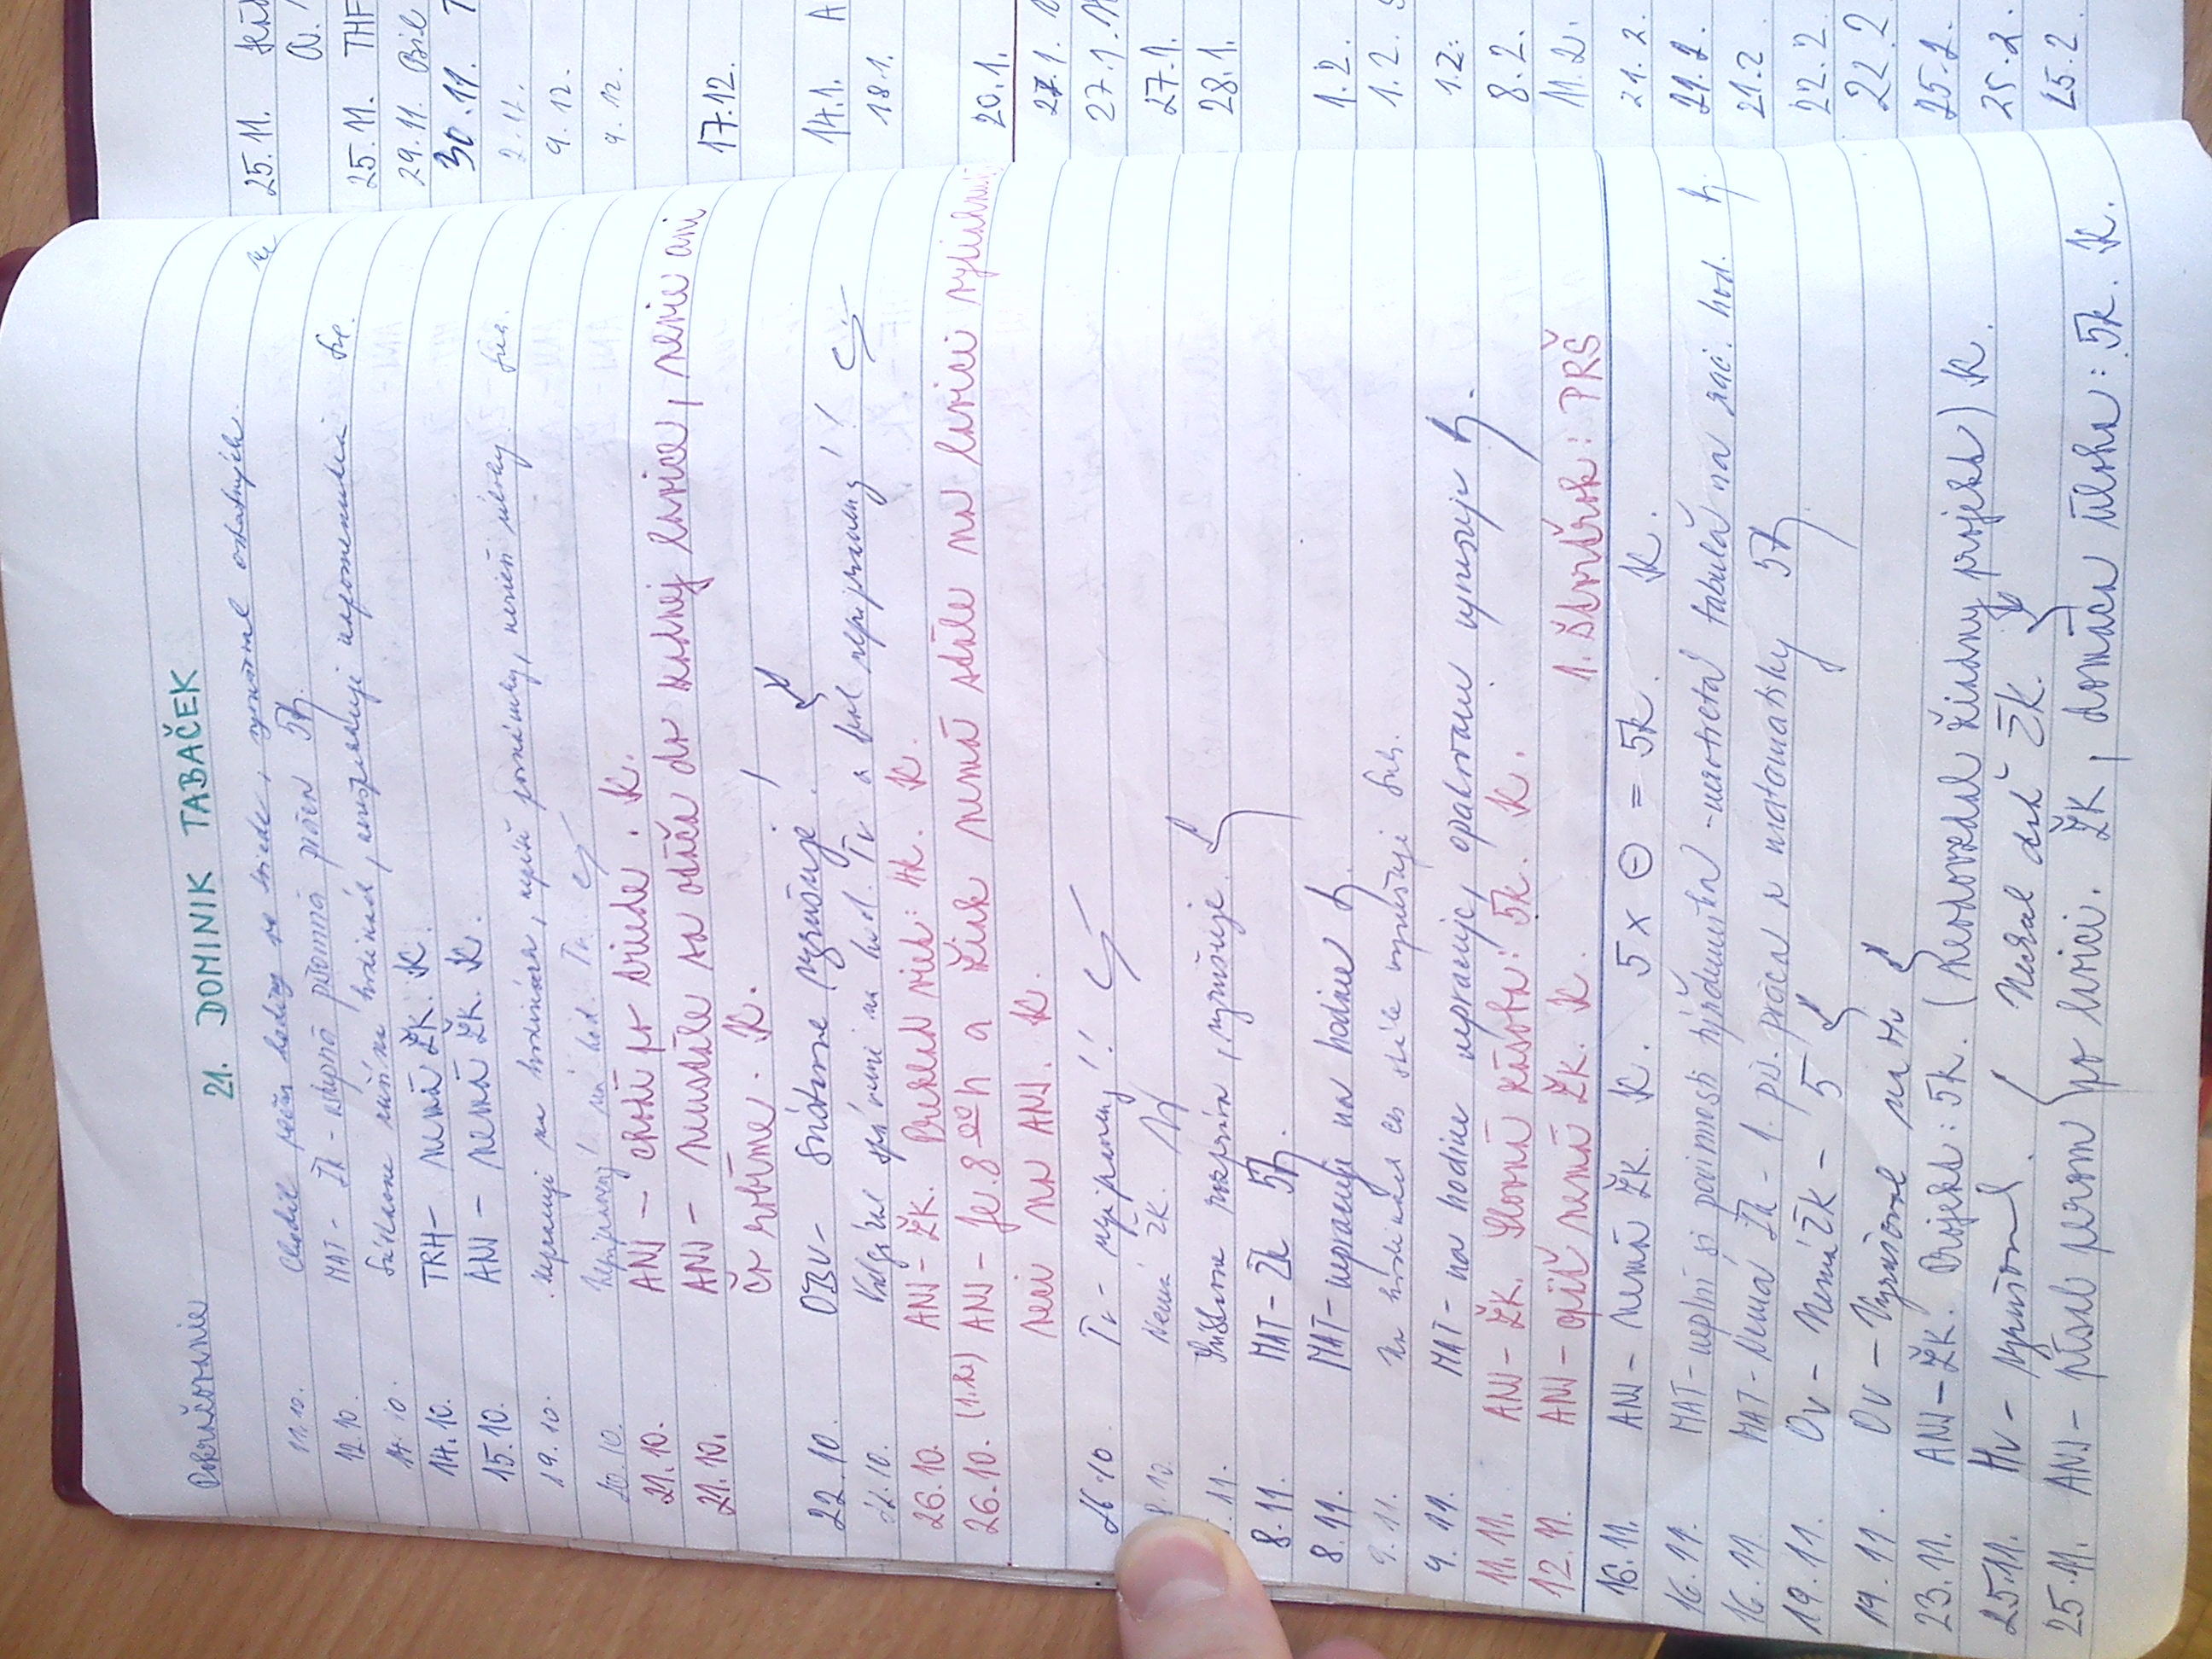 Pokračovanie
21. DOMINIK TABAČEK
11.10. Chodil počas hodiny po triede, vyrušoval ostatných.
12.10. MAT - ŽK - vstupná písomná práca 5
14.10. Sústavne na hodinách, nerešpektuje napomenutia
14.10. TRH - nemá ŽK. K.
15.10. ANJ - nemá ŽK. K.
19.10. nepracuje na hodinách, nepíše poznámky, nenosí
20.10. Nepripravený na hod. Tv.
21.10. ANJ - chodí po triede. K.
21.10. ANJ - neustále sa otáča do zadnej lavice, nevie ani
čo robíme. K.
22.10. OBV - Sústavne vyrušuje.
22.10. na hod. Tv a bol nepripravený!!
26.10. ANJ - ŽK. K.
26.10. (1.h) ANJ - Je 8 00 h a žiak nemá stále na lavici
veci na ANJ. K.
26.10 Tv - nepripravený!!
Nemá ŽK.
11. Sústavne rozpráva, vyrušuje.
8.11. MAT - ŽK 5
8.11. MAT - nepracuje na hodine
9.11. na hodinách stále vyrušuje
9.11. MAT - na hodine nepracuje, opakovane vyrušuje
11.11. ANJ - ŽK. Slovná zásoba: 5k. K.
12.11. ANJ - opäť nemá ŽK. K. 1. Štvrťrok: PRŠ
16.11. ANJ - nemá ŽK. K. 5 x ⊖ = 5k. K.
16.11. MAT - neplní si povinnosti týždenníka - neutretá tabuľa na zač. hod.
16.11. MAT - Nemá ŽK - 1. pís. práca z matematiky 5
19.11. OV - Nemá ŽK - 5
19.11. OV - Vyrušoval na Hv
23.11. ANJ - ŽK. Projekt: 5k. (neodovzdal žiadny projekt) K.
25.11. Hv - vyrušoval. Nechcel dať ŽK.
25.11. ANJ - písal perom po lavici. ŽK, domáca úloha: 5k. K.
25.11.
25.11. THF
29.11. Biol
30.11.
9.12.
9.12.
17.12.
14.1. A
18.1.
20.1.
27.1.
27.1.
27.1.
28.1.
1.2.
1.2.
1.2.
8.2.
11.2.
21.2.
21.2
21.2
22.2
22.2
25.2.
25.2.
25.2.